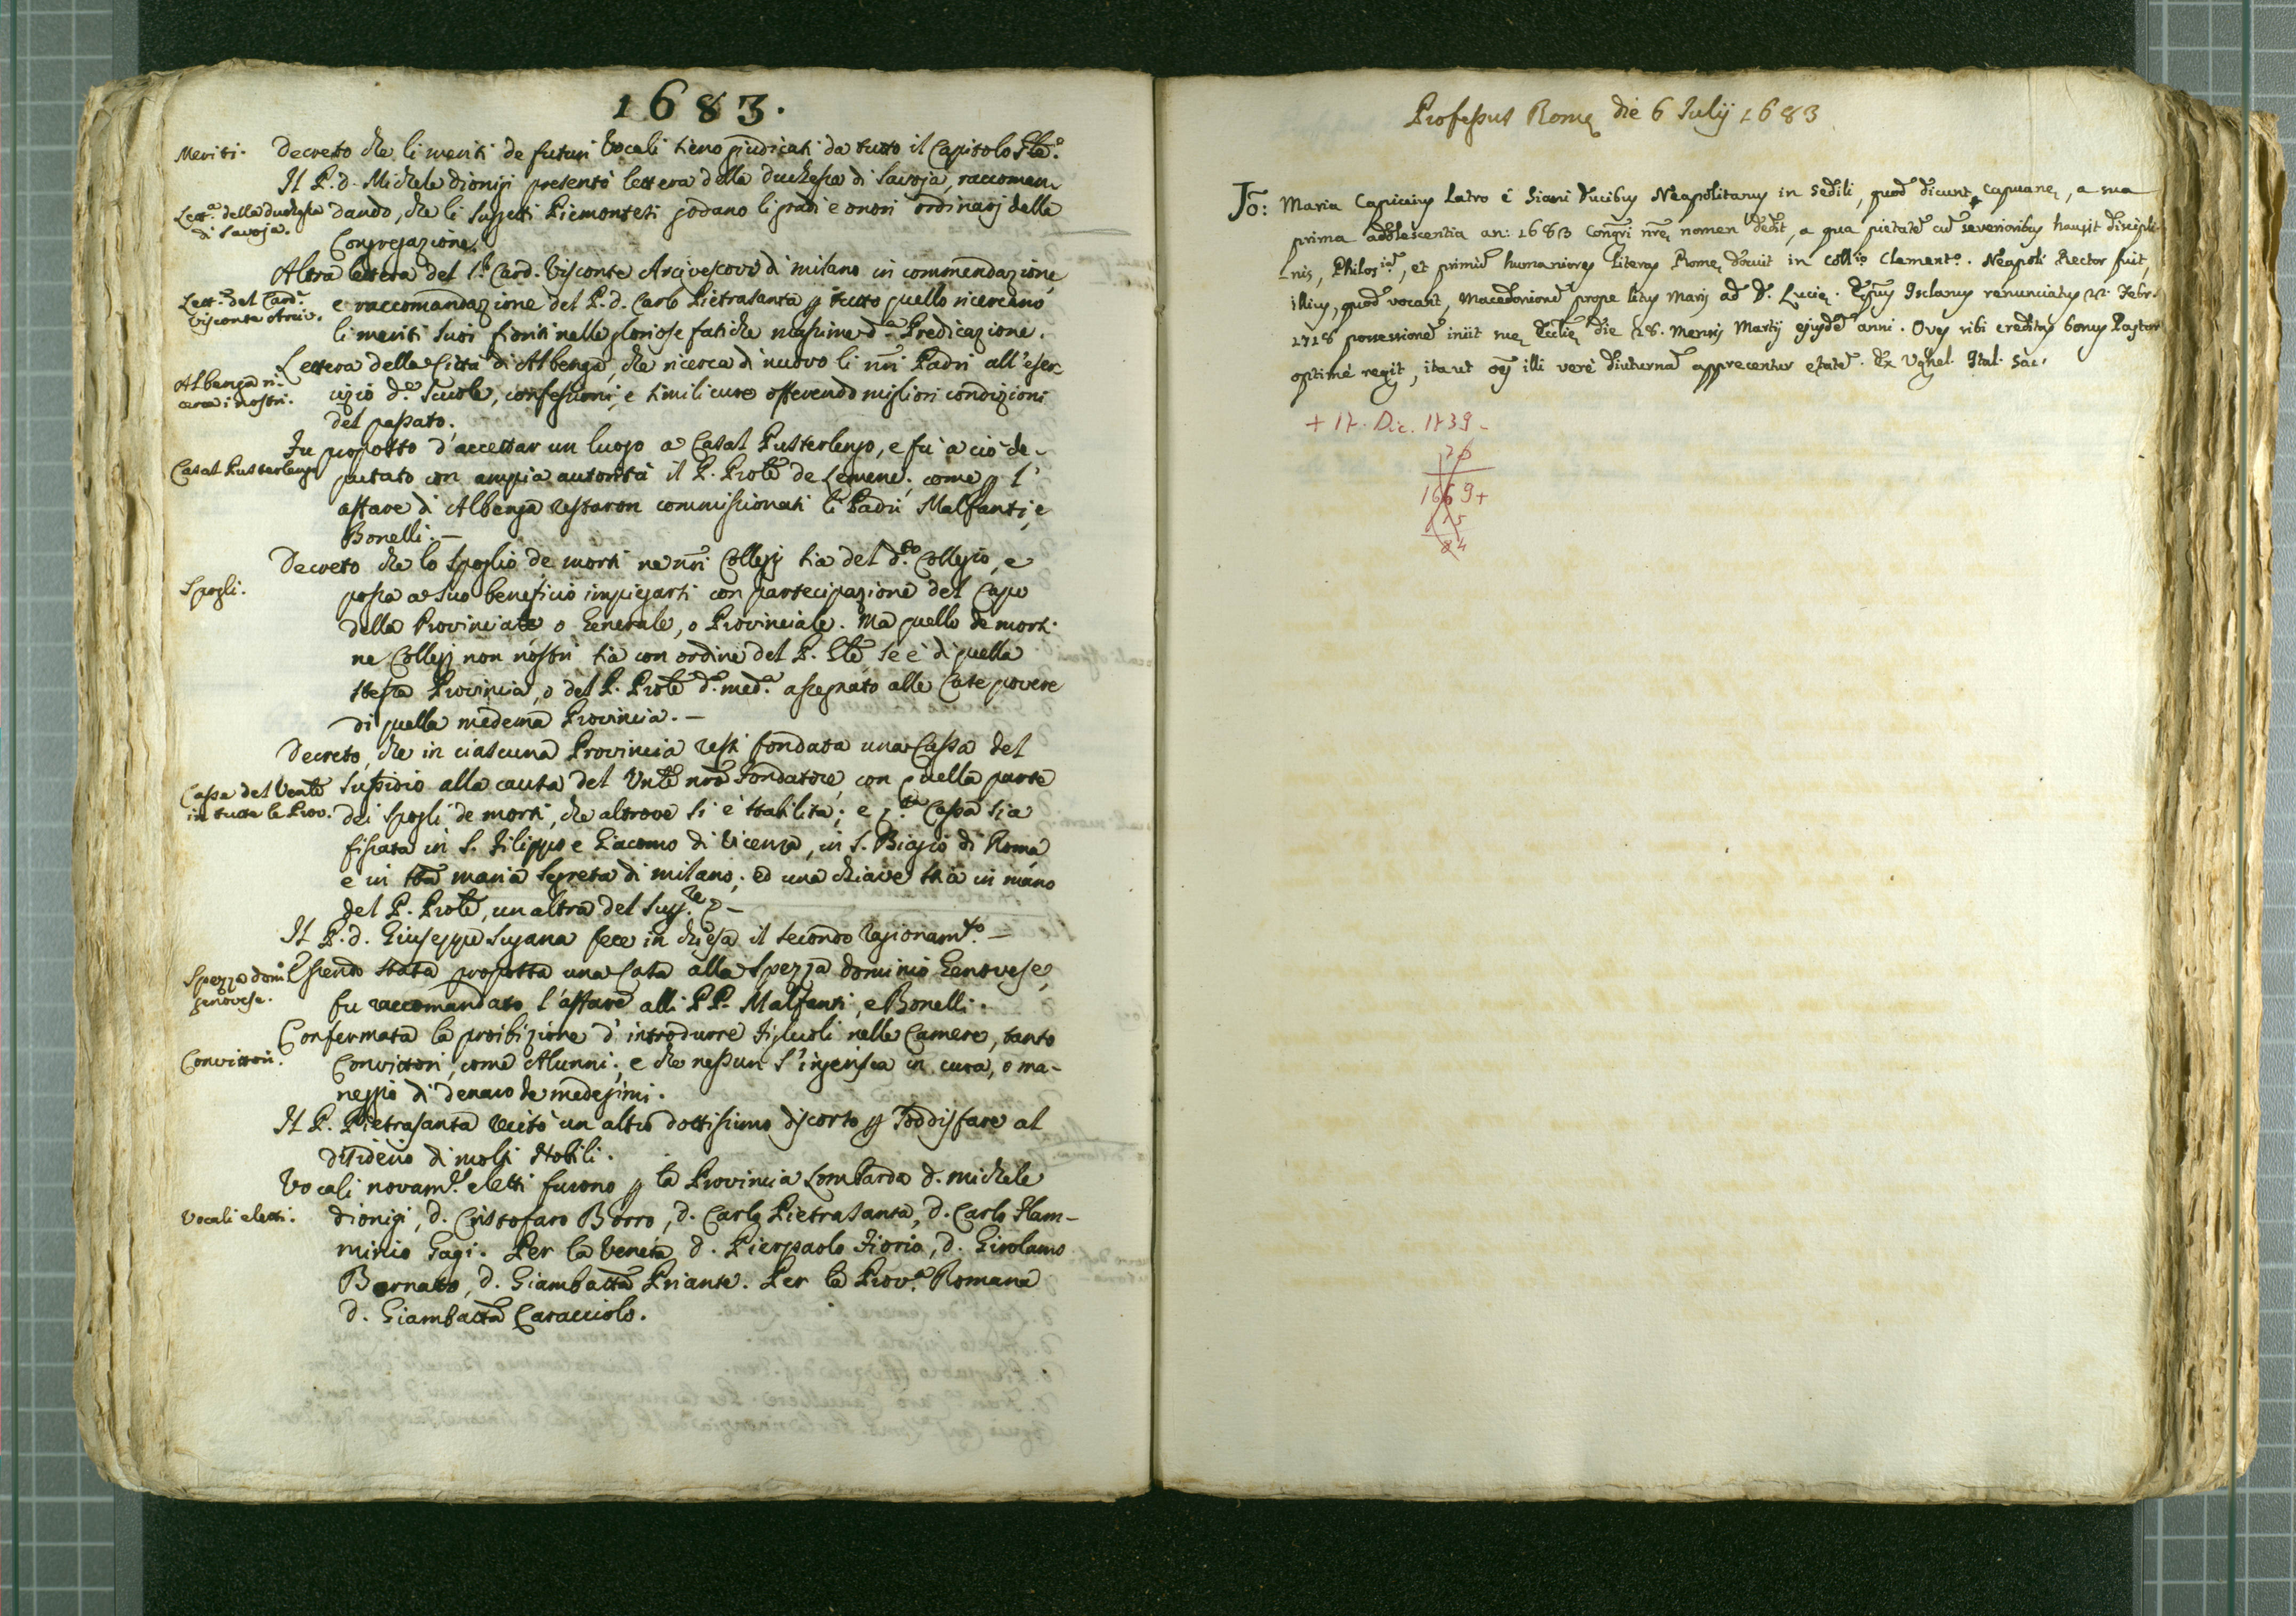 1683.
Meriti.
Decreto che li meriti de futuri Vocali sieno giudicati da tutto il Capitolo Gle.
Il P. d. Michele Dionigi presentò lettera della Duchessa di Savoja, raccoman-
Lett.ª della Duchessa
di Savoja.
dando, che li suggetti Piemontesi godano li gradi e onori ordinarj della
Congregazione.
Altra lettera del S.r Card. Visconte Arcivescovo di Milano in commendazione,
Lett.ª del Card.
Visconte Arciv.
e raccomandazione del P. d. Carlo Pietrasanta p tutto quello ricercano
li meriti suoi fioriti nelle gloriose fatiche massime d.ª Predicazione.
Lettera della Città di Albenga, che ricerca di nuovo li nri Padri all'eser-
Albenga ri-
cerca i nostri.
cizio d.e Scuole, confessioni, e simili cure offerendo migliori condizioni
del passato.
Fu proposto d'accettar un luogo a Casal Pusterlengo, e fu a ciò de-
Casal Pusterlengo
putato con ampia autorità il P. Prole de Lemene; come p l'
affare di Albenga restaron commissionati li Padri Malfanti, e
Bonelli. —
Decreto che lo spoglio de morti ne nri Collegj sia del d.to Collegio, e
Spogli.
possa a suo beneficio impiegarsi con partecipazione del Capo
della Provincia o Generale, o Provinciale. Ma quello de morti
ne Collegj non nostri sia con ordine del P. Gle se è di quella
stessa Provincia, o del P. Prole d.ª med.ª assegnato alle Case povere
di quella medema Provincia. —
Decreto, che in ciascuna Provincia resti fondata una Cassa del
Cassa del Venle
in tutte le Prov.
sussidio alla causa del Vnle nro Fondatore, con quella parte
dei spogli de morti, che altrove si è stabilita; e q.ta Cassa sia
fissata in S. Filippo e Giacomo di Vicenza, in S. Biagio di Roma
e in Sta Maria Segreta di Milano; ed una chiave stia in mano
del P. Prole, un altra del Sup.re —
Il P. d. Giuseppe Sujana fece in chiesa il secondo ragionam.to —
Spezza domi.o
genovese.
Essendo stata proposta una Casa alla Spezza dominio Genovese,
fu raccomandato l'affare alli PP. Malfanti, e Bonelli.
Confermata la proibizione d'introdurre Figliuoli nelle Camere, tanto
Convittori.
Convittori, come Alunni; e che nessun s'ingerisca in cura, o ma-
neggio di denaro de medesimi.
Il P. Pietrasanta recitò un altro dottissimo discorso p soddisfare al
disiderio di molti Nobili.
Vocali novam.e eletti furono p la Provincia Lombarda d. Michele
Vocali eletti.
Dionigi, d. Cristofaro Borro, d. Carlo Pietrasanta, d. Carlo Flam-
minio Gagi. Per la Veneta d. Pierpaolo Fiorio, d. Girolamo
Bernabò, d. Giambatta Priante. Per la Prov.ª Romana
d. Giambatta Caracciolo.
Professus Romę die 6 Julij 1683
Jo: Maria Capicius Latro é Siani Ducibus Neapolitanus in sedili, quod dicunt Capuanę, a sua
prima adolescentia an: 1683 Congri nrę nomen dedit, a qua pietatē cū severioribus hausit discipli-
nis, Philos.iā, et primū humaniores literas Romę docuit in coll.o Clement.o. Neapoli Rector fuit,
illius, quod vocant, Macedonionē prope litus Maris ad D. Lucię. Epus Isclanus renunciatus 22. Febr.
1718 possessionē iniit suę Ecclię die 28. Mensis Martij ejusdē anni. Oves sibi creditas bonus Pastor
optimé regit, ita ut oēs illi veré diuturnā apprecentur ętatē. Ex Ughel. Ital. Sac.
+ 17. Dic. 1739 -
1669+
15
84